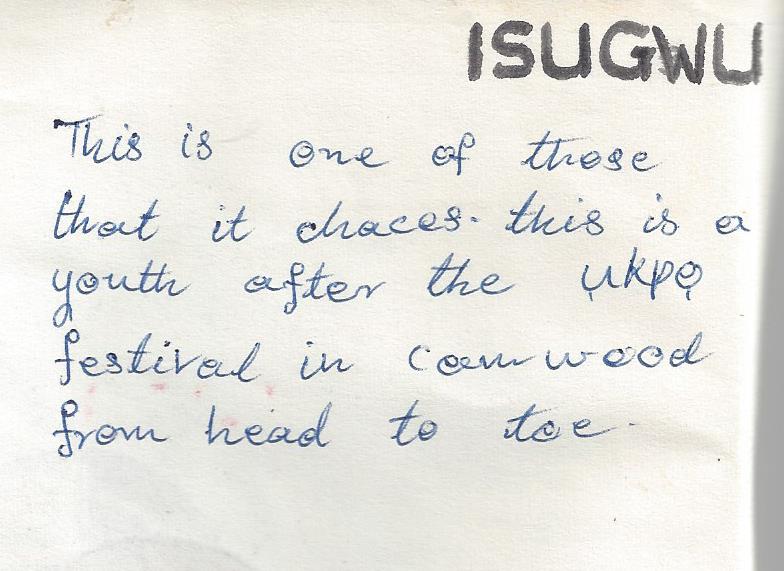 ISUGWU
This is one of those
that it chaces. this is a
youth after the ụkpọ
festival in camwood
from head to toe.